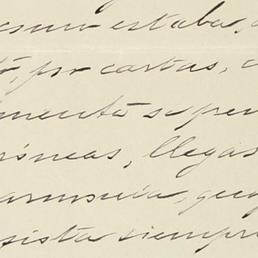 estaba,
por cartas,
se pre
neas, llegas
armonía, que
sista siempre